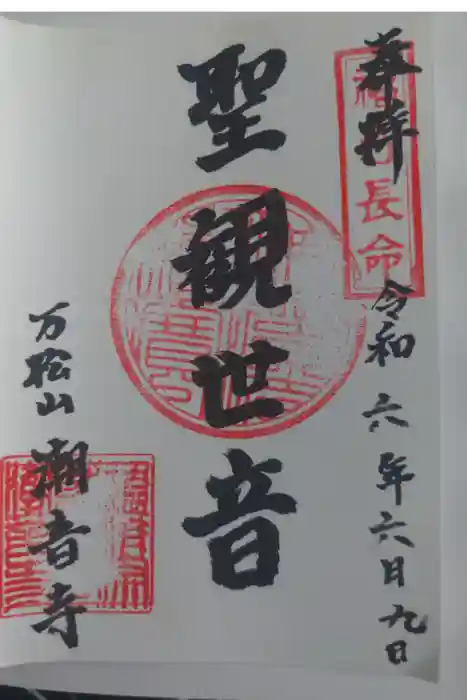 奉拝
長命
令和六年六月九日
聖観世音
万松山
潮音寺